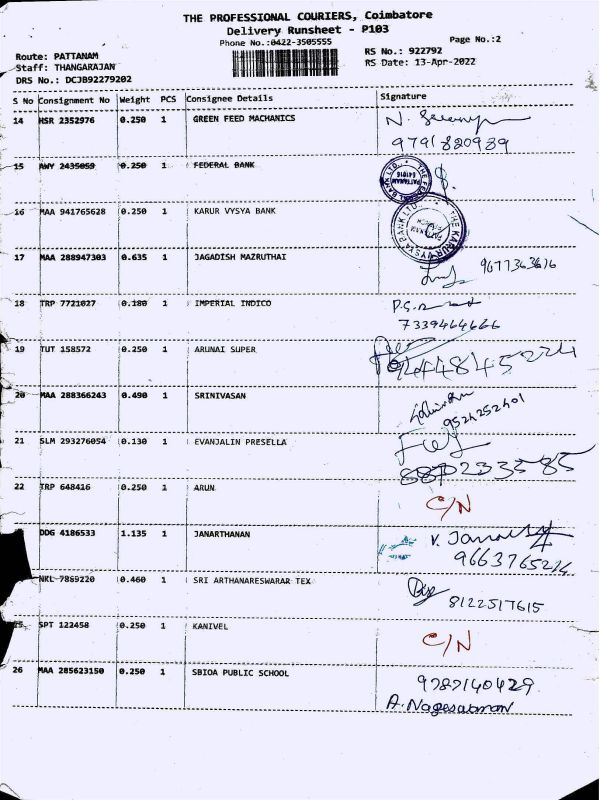 THE PROFESSIONAL COURIERS, Coimbatore
Delivery Runsheet - P103
Phone No.:0422-3505555
Page No.:2
Route: PATTANAM
RS No.: 922792
Staff: THANGARAJAN
RS Date: 13-Apr-2022
DRS No.: DCJB92279202
S No Consignment No Weight PCS Consignee Details Signature
14 HSR 2352976 0.250 1 GREEN FEED MACHANICS N.
9791820939
15 AWY 2435059 0.250 1 FEDERAL BANK
THE FEDERAL BANK LTD. PATTANAM 641016
16 MAA 941765628 0.250 1 KARUR VYSYA BANK
THE KARUR VYSYA BANK LTD.
17 MAA 288947303 0.635 1 JAGADISH MAZRUTHAI
9677363616
18 TRP 7721027 0.180 1 IMPERIAL INDICO P.S.
7339464666
19 TUT 158572 0.250 1 ARUNAI SUPER
20 MAA 288366243 0.490 1 SRINIVASAN
9524252401
21 SLM 293276054 0.130 1 EVANJALIN PRESELLA
22 TRP 648416 0.250 1 ARUN
C/N
DDG 4186533 1.135 1 JANARTHANAN V.
9663765214
NKL 7869220 0.460 1 SRI ARTHANARESWARAR TEX
8122517615
25 SPT 122458 0.250 1 KANIVEL C/N
26 MAA 285623150 0.250 1 SBIOA PUBLIC SCHOOL 9787140429
A. Nagesarman